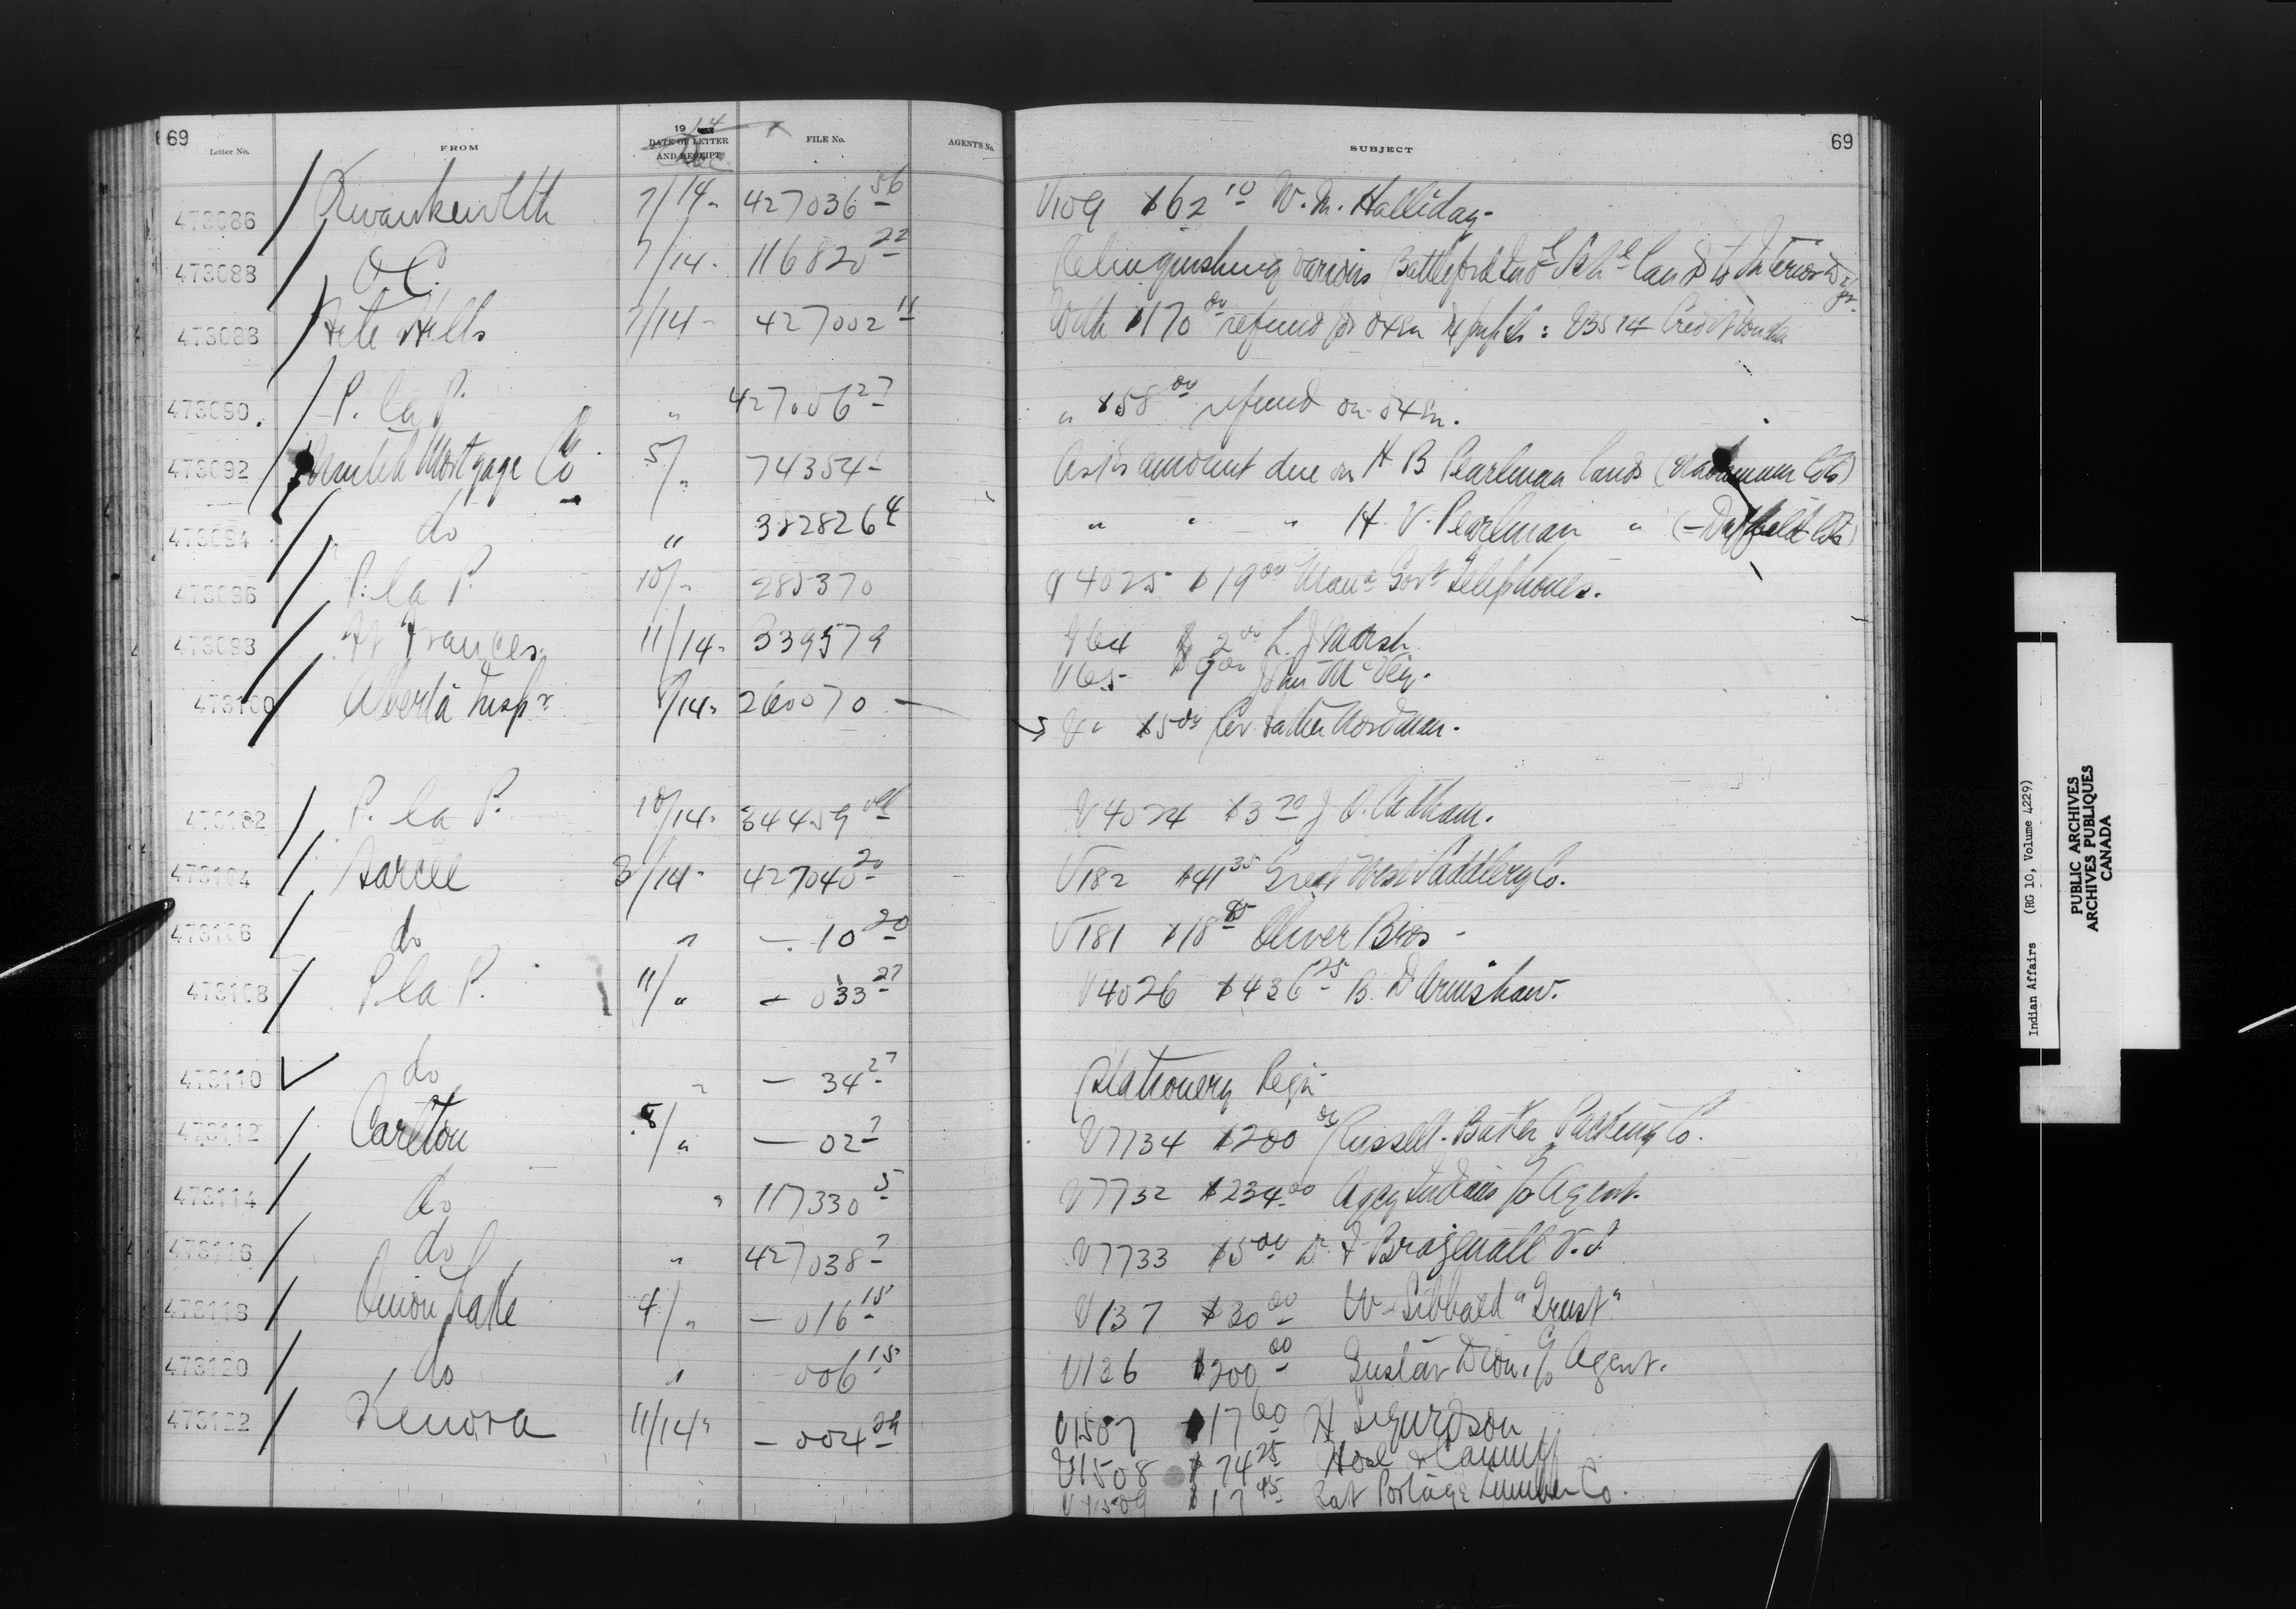 69
Letter No. FROM 1914 DATE OF LETTER AND RECEIPT Dec FILE No. AGENT'S No. SUBJECT 69
473086 Kwawkewlth 7/14 427036 56 V109 $62 10 W. M. Halliday
473088 O C. 7/14 116820 22 Relinquishing various Battleford Ind l Sch l land to Interior
473088 File Hills 7/14 427002 11 With $170 00 refund for oxen V3514
473090 P. la P. " 427006 27 " $58 00 refund on oxen.
473092 Mortgage Co 5/" 74354 Asks amount due on H B Pearlman lands
473094 do " 382826 4 " " " H. V. Pearlman " (Duffield Lots)
473096 P. la P. 10/" 285370 V4025 $19 00 Man a Gov t Telephones.
473098 Ft Frances 11/14 339579 V64 $2 00 L. J Marsh
V65 $9 00 John McVey.
473100 Alberta Insp r 9/14 260070 V " $5 00 Rev. Father
473102 P. la P. 10/14 344459 V4024 $3 70 J. O.
473104 Sarcee 3/14 427040 20 V182 $41 35 Great West Saddlery Co.
473106 do " — 10 20 V181 $18 85 Oliver Bros
473108 P la P. 11/" — 033 27 V4026 $436 25 B. D
473110 do " — 34 27 Stationery Reqn
473112 Carlton 8/" — 02 7 V7734 $200 00 Russell-Baker Packing Co.
473114 do " 117330 5 V7732 $234 00 Agcy Indians p Agent.
473116 do " 427038 7 V7733 $5 00
473118 Onion Lake 4/" — 016 15 V137 $30 00 W Sibbald "Trust"
473120 do " 006 15 V136 $200 00 Gustav Dion, c/o Agent.
473122 Kenora 11/14 — 004 29 V1507 $17 60 H Sigurdson
V1508 $74 25 Hose & Canniff
V1509 $17 45 Rat Portage Lumber Co.
Indian Affairs (RG 10, Volume 4229)
PUBLIC ARCHIVES
ARCHIVES PUBLIQUES
CANADA